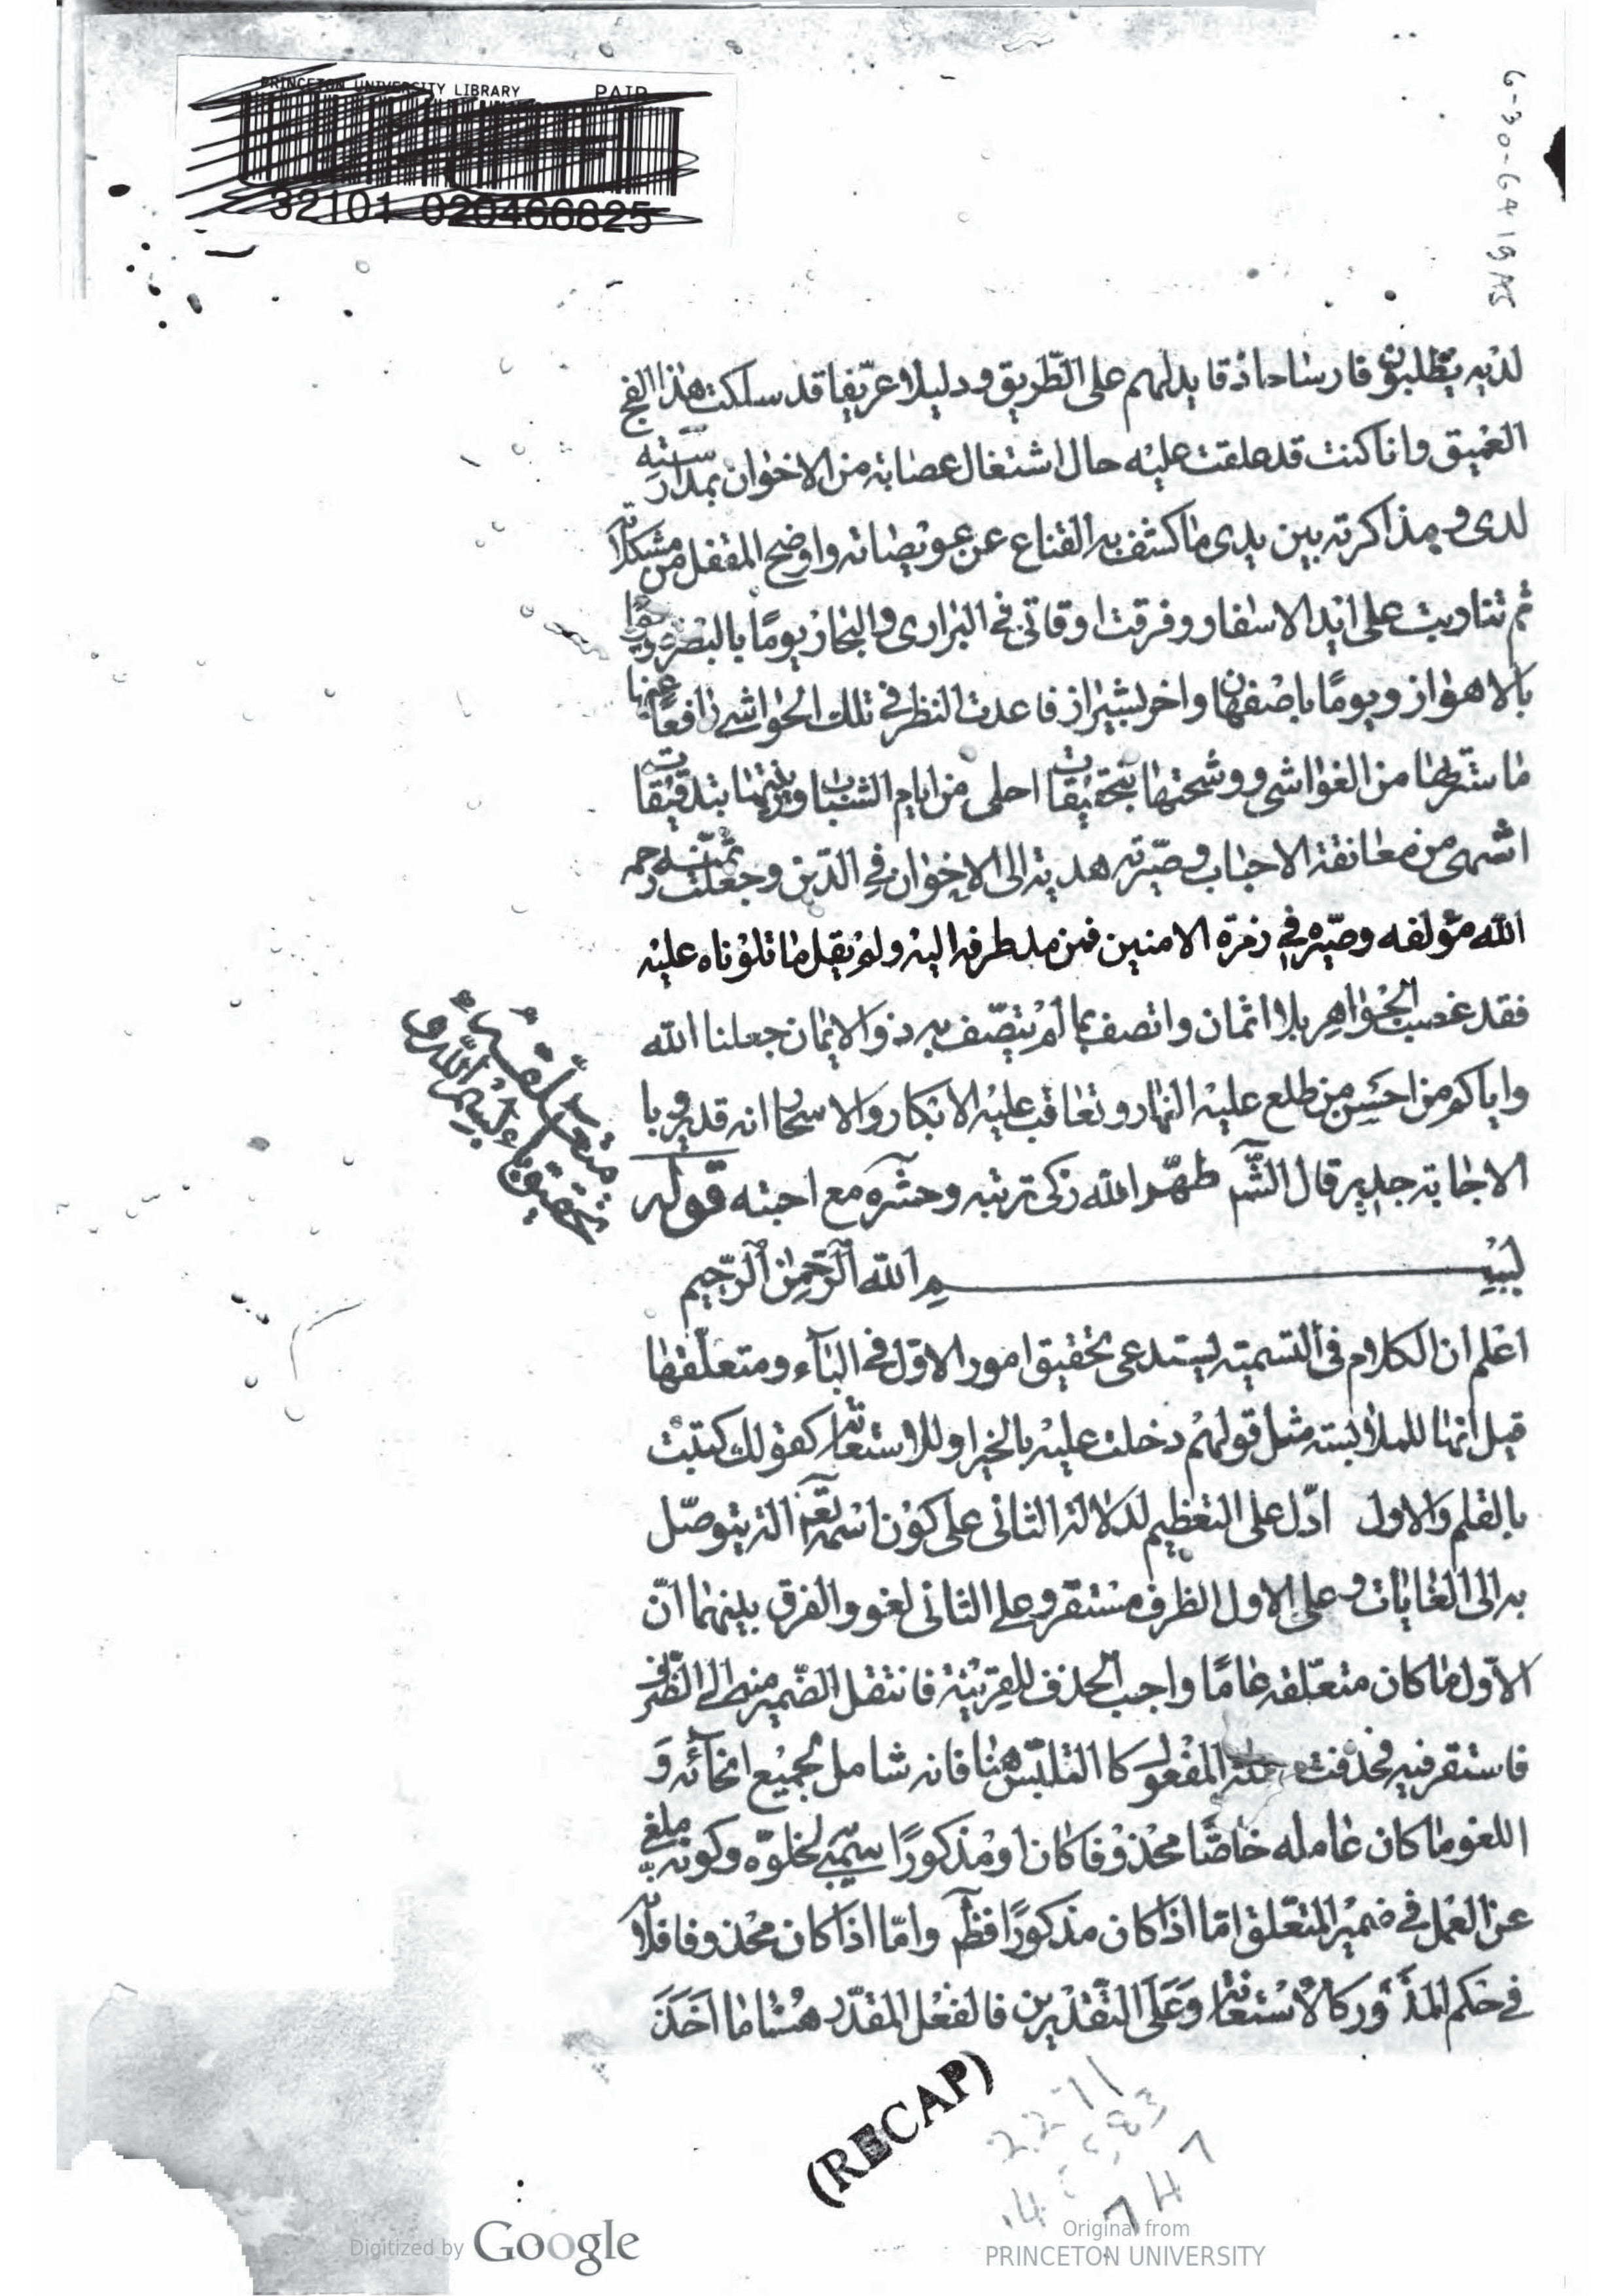 PRINCETON UNIVERSITY LIBRARY PAIR
32101 020466825
6-30-64 19 AS
لديه يطلبون فارسا حاذقا يدلهم على الطّريق ودليلا عرّيفا قد سلكت هذا الفج
العميق وانا كنت قد علقت عليه حال اشتغال عصابة من الاخوان بمدارسته
لدى ومذاكرته بين يدى ما كشف به القناع عن عويصاته واوضح المقفل من مشكلاته
ثم تناوبت على ايد الاسفار وفرقت اوقاتى فى البرارى والبحار يومًا بالبصرة
بالاهواز ويومًا باصفهان واخر بشيراز فاعدت النظر فى تلك الحواشى رافعًا عنها
ما سترها من الغواشى ووشحتها بتحقيقات احلى من ايام الشباب وزينتها بتدقيقات
اشهى من معانقة الاحباب وصيّرته هدية الى الاخوان فى الدّين وجعلت
الله مؤلفه وصيّره فى زمرة الامنين فمن مد طرفه اليه ولم يقل ما تلوناه عليه
فقد غصب الجواهر بلا اثمان واتصف بما لم يتصّف به ذو الايمان جعلنا الله
واياكم من احسن من طلع عليه النهار وتعاقب عليه الابكار والاسحار انه قدير وبا
الاجابة جدير قال الشّم طهّر الله زكى تربته وحشره مع احبته قوله
بسم الله الرّحمن الرّحيم
اعلم ان الكلام فى التسمية يستدعى تحقيق امور الاوّل فى البآء ومتعلّقها
قيل انها للملابسته مثل قولهم دخلت عليه بالخير او للاستعانة كقولك كتبت
بالقلم والاول ادّل على التعظيم لدلالة الثانى على كون اسمه تعم آلة يتوصّل
به الى الغايات وعلى الاول الظرف مستقر وعلى الثانى لغو والفرق بينهما انّ
الاوّل ما كان متعلّقه عامًا واجب الحذف للقرينة فانتقل الضمير منه الى الظّرف
فاستقر فيه فحذفت المفعول كا التلبّس هنا فانه شامل لجميع انحآئه وَ
اللغو ما كان عامله خاصًا محذوفا كان او مذكورًا سمّى لخلوّه وكونه ملغى
عن العمل فى ضمير المتعلق امّا اذا كان مذكورًا فظّم وامّا اذا كان محذوفا فلانه
فى حكم المذكور كالاستعانة وعلى التقديرين فالفعل المقدّر هنا ما اخذ
(RECAP)
Digitized by Google
Original from
PRINCETON UNIVERSITY